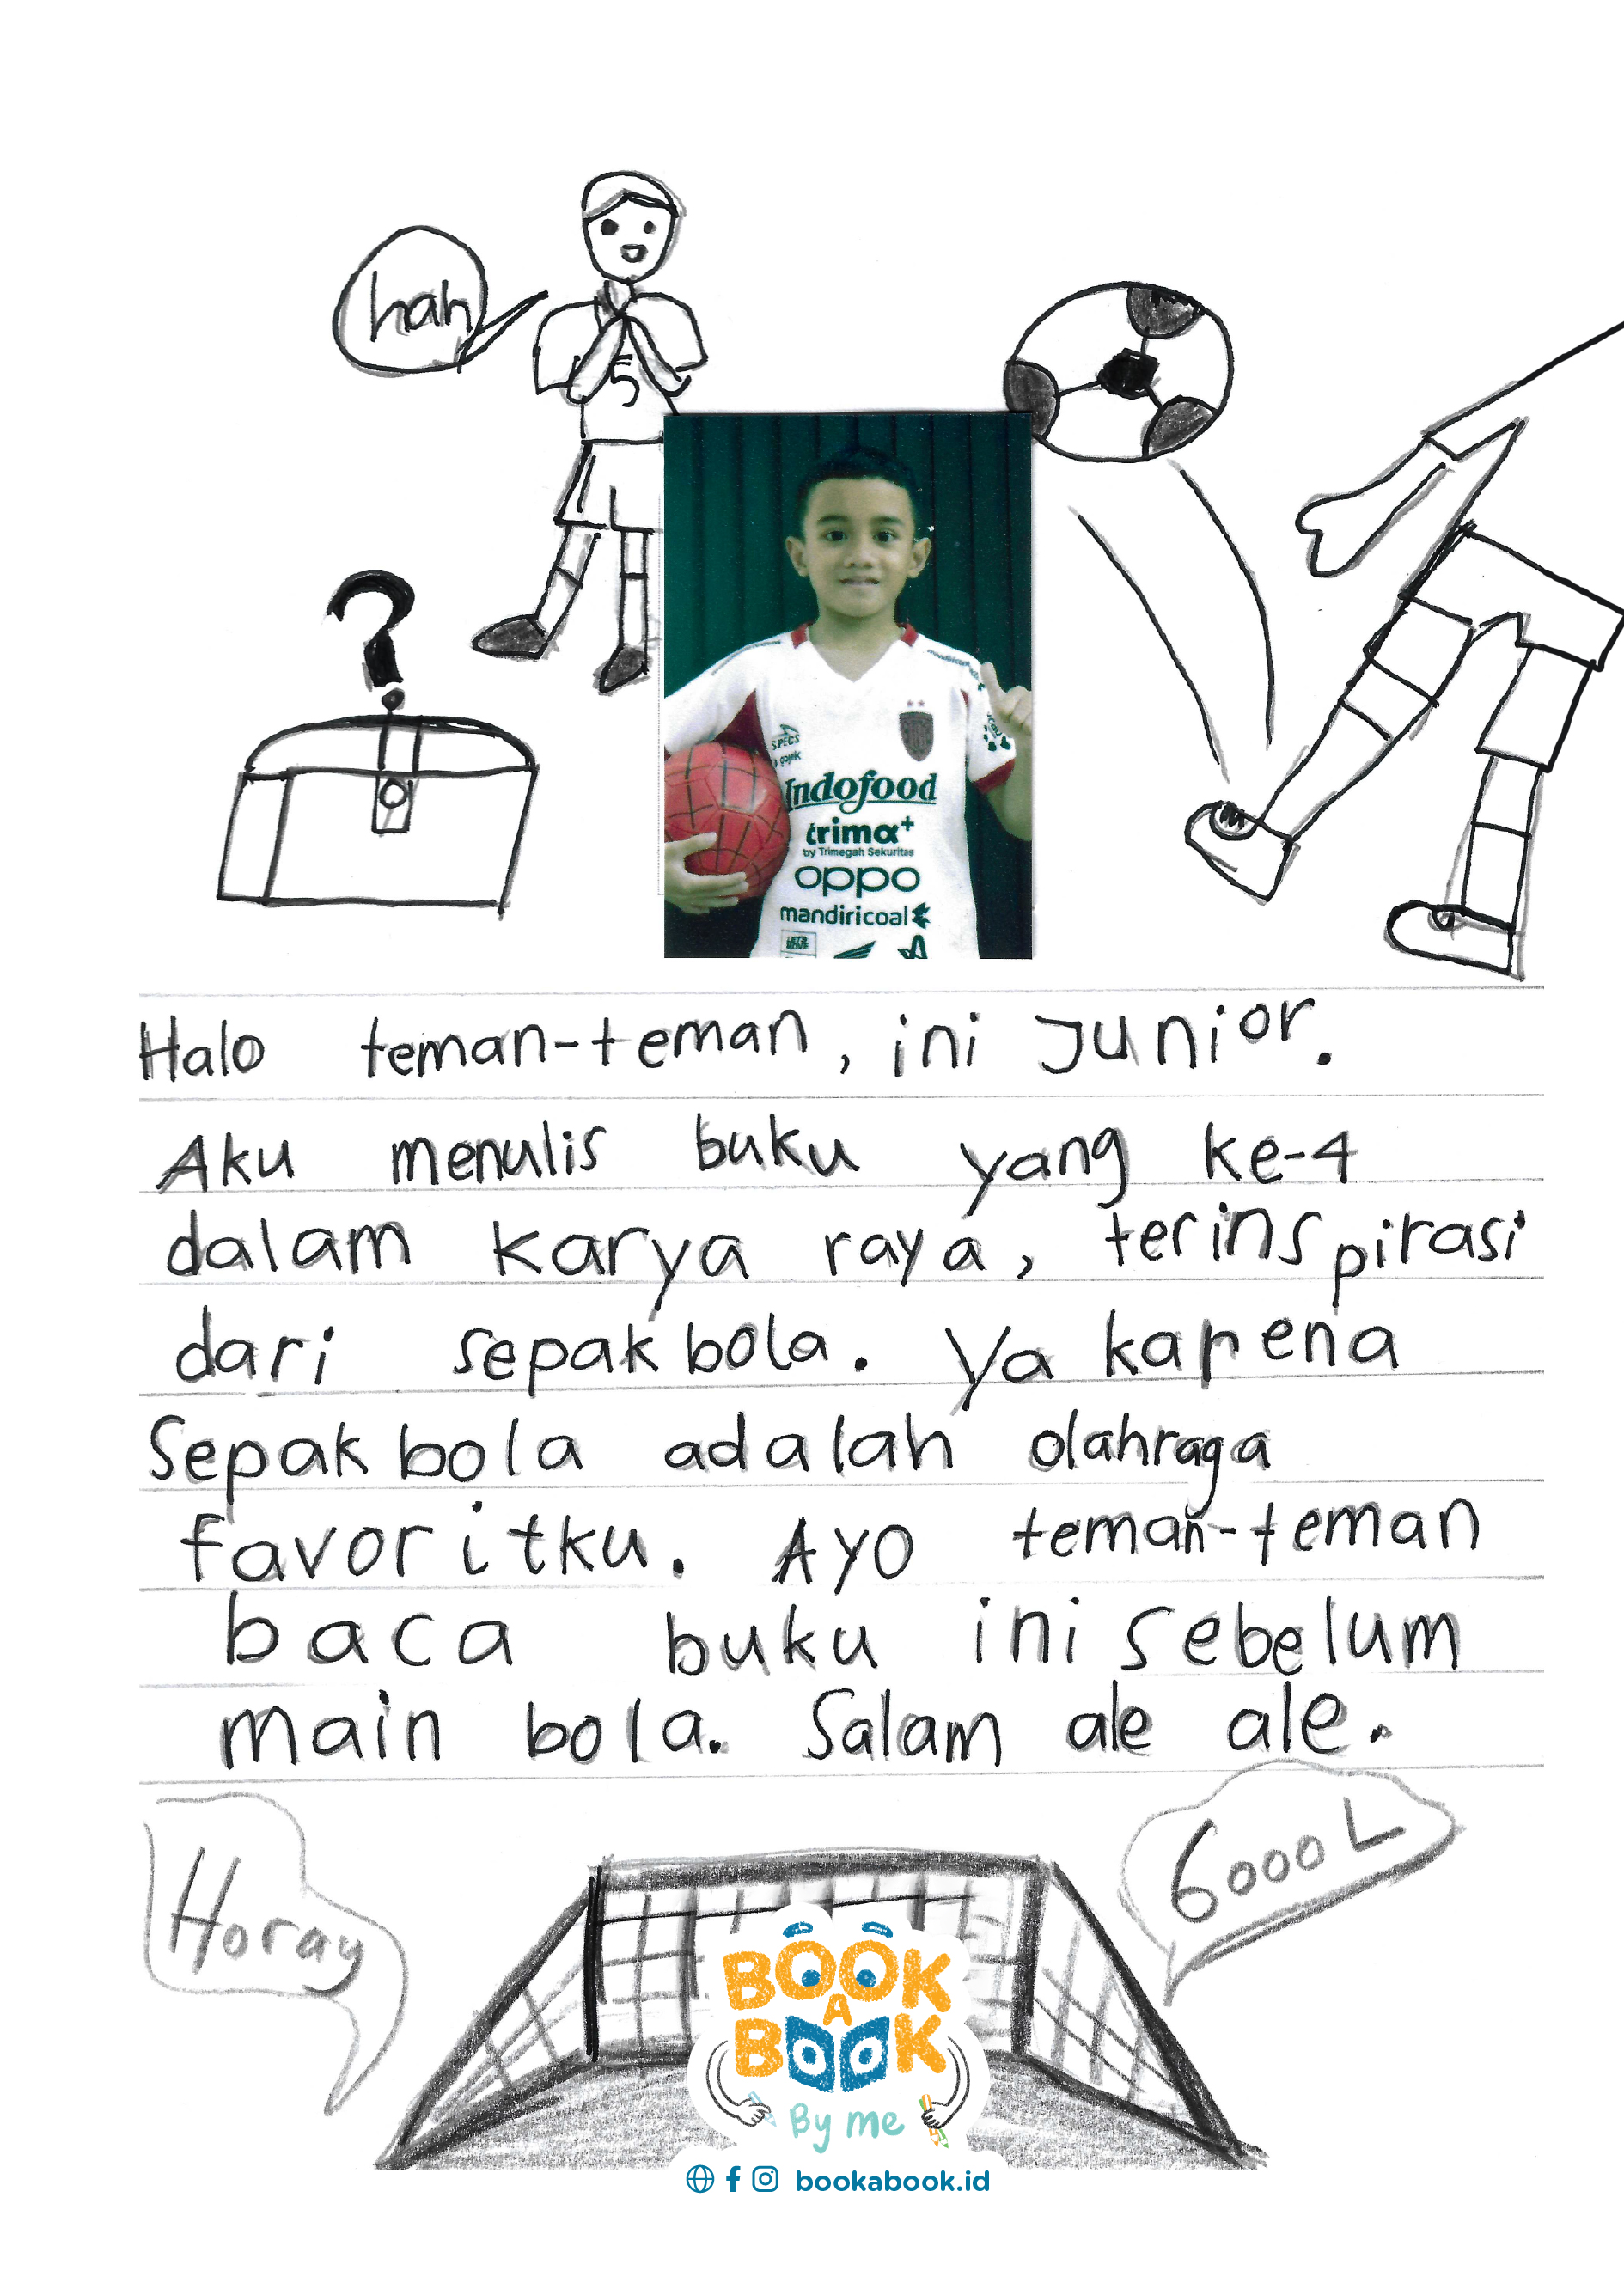 hah
5
?
SPECS
gojek
Indofood
trima+
by Trimegah Sekuritas
oppo
mandiricoal
LET'S MOVE
Halo teman-teman, ini Junior.
Aku menulis buku yang ke-4
dalam karya raya, terinspirasi
dari sepakbola. Ya karena
Sepakbola adalah olahraga
favoritku. AYO teman-teman
baca buku ini sebelum
main bola. Salam ale ale.
Horay
GoooL
BOOK
A
BOOK
By me
bookabook.id